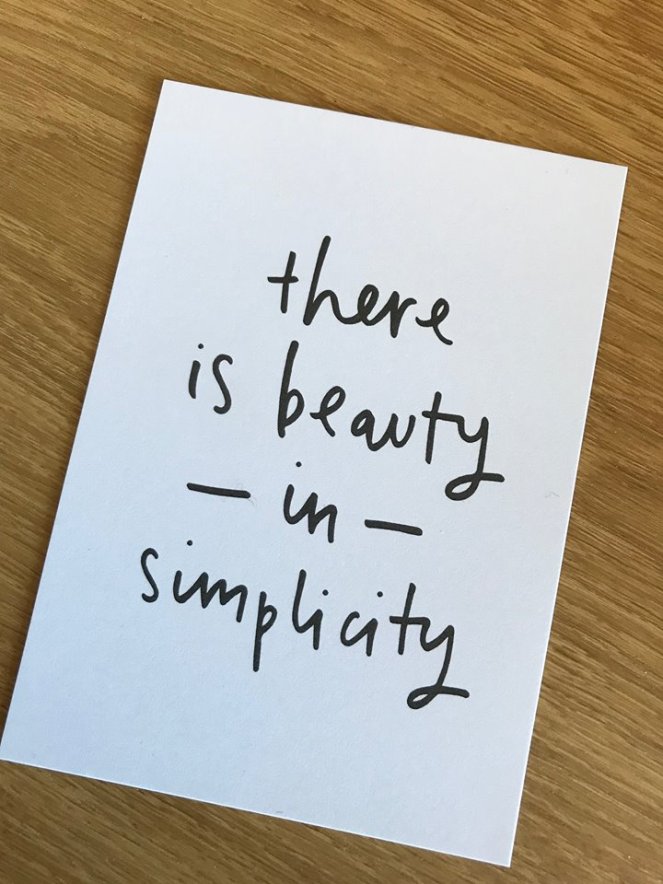 there
is beauty
– in –
simplicity